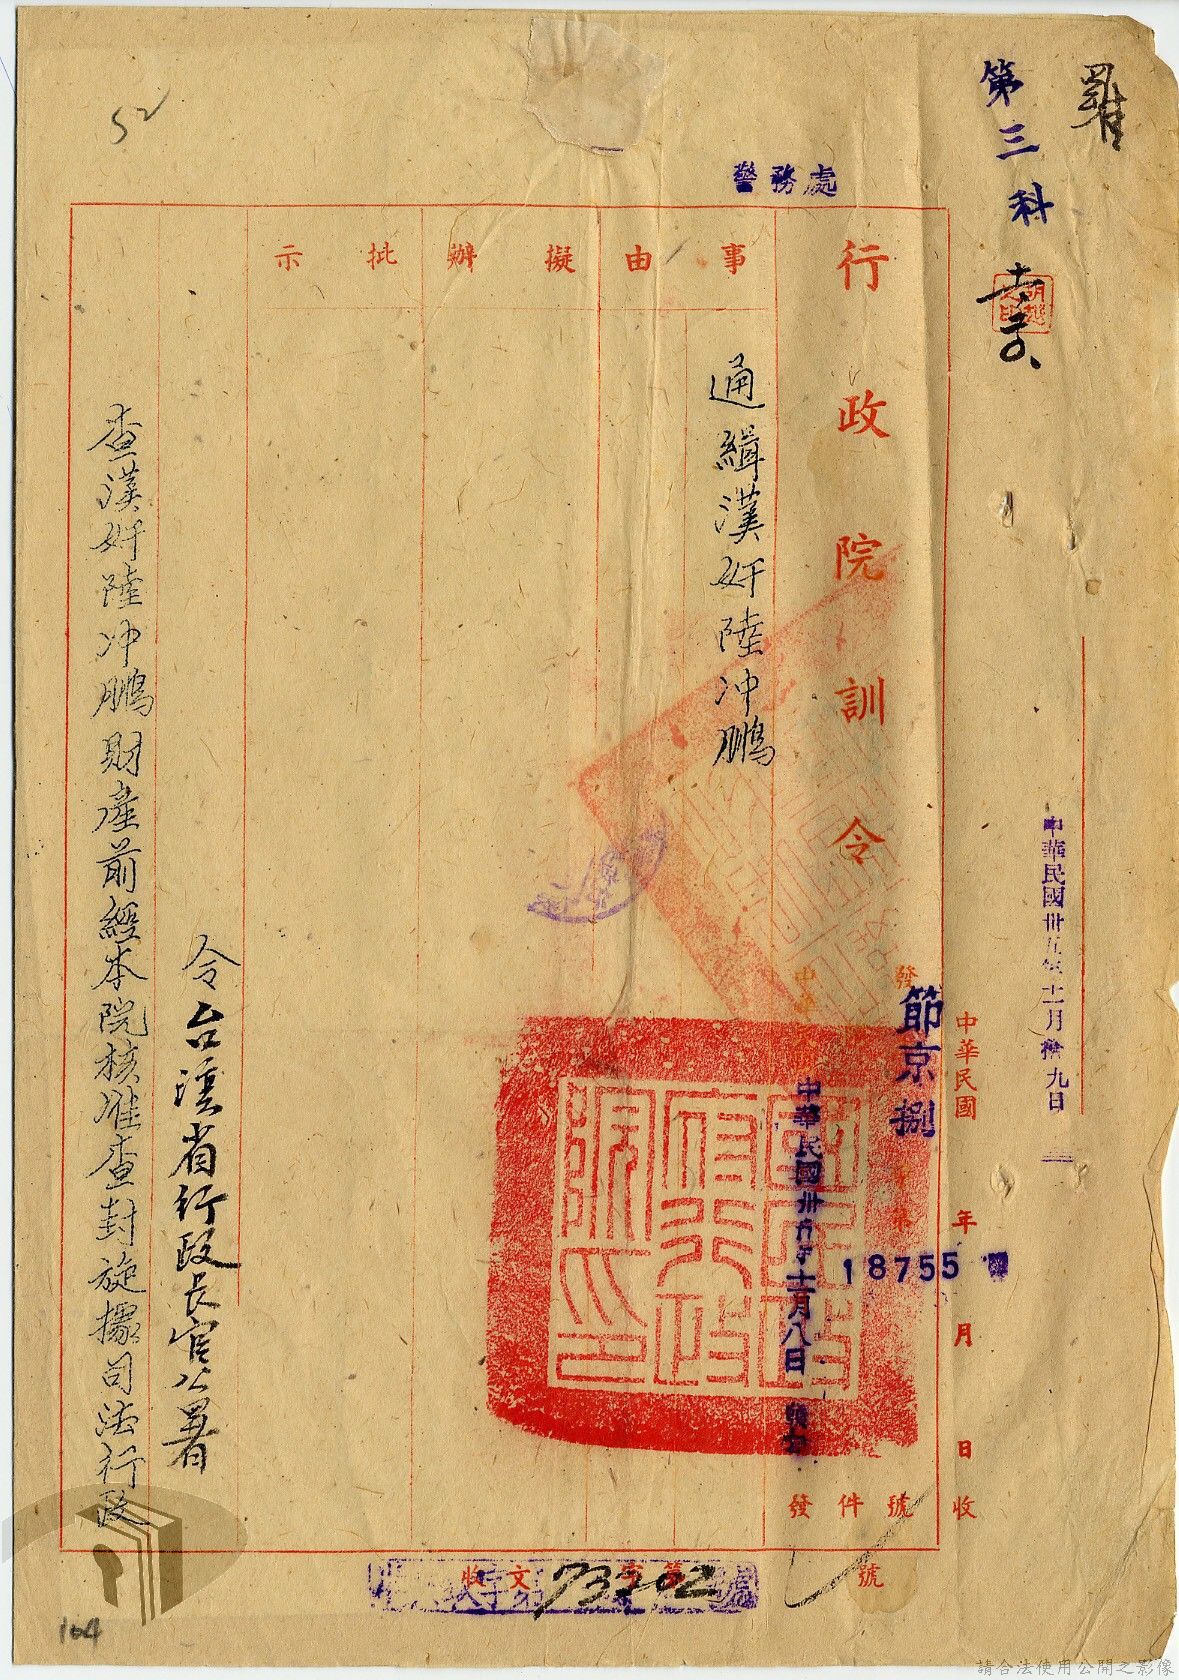 羅
第三科
中華民國卅五年十一月拾九日
警務處
行政院訓令
中華民國 年 月 日 收
發
節京捌
18755 號
中華民國卅五年十一月八日
發件號
號
事由
擬辦
批示
通緝漢奸陸冲鵬
令台灣省行政長官公署
查漢奸陸冲鵬財產前經本院核准查封旋據司法行政
收文 字第 73202 號
52
104
請合法使用公開之影像